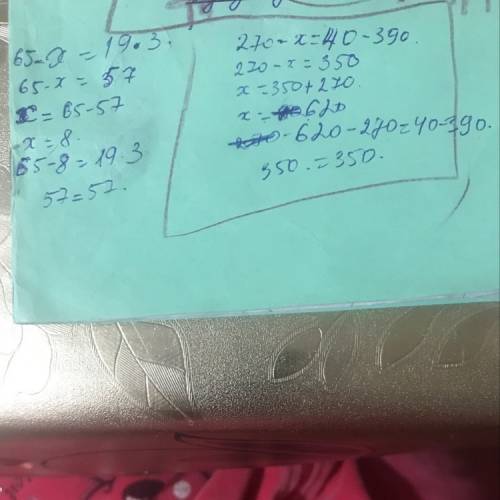 65-x = 19·3.
65-x = 57
x = 65-57
x = 8.
65-8 = 19·3
57 = 57.
270-x = 40-390.
270-x = 350
x = 350+270.
x = 620
620-270 = 40-390.
350. = 350.